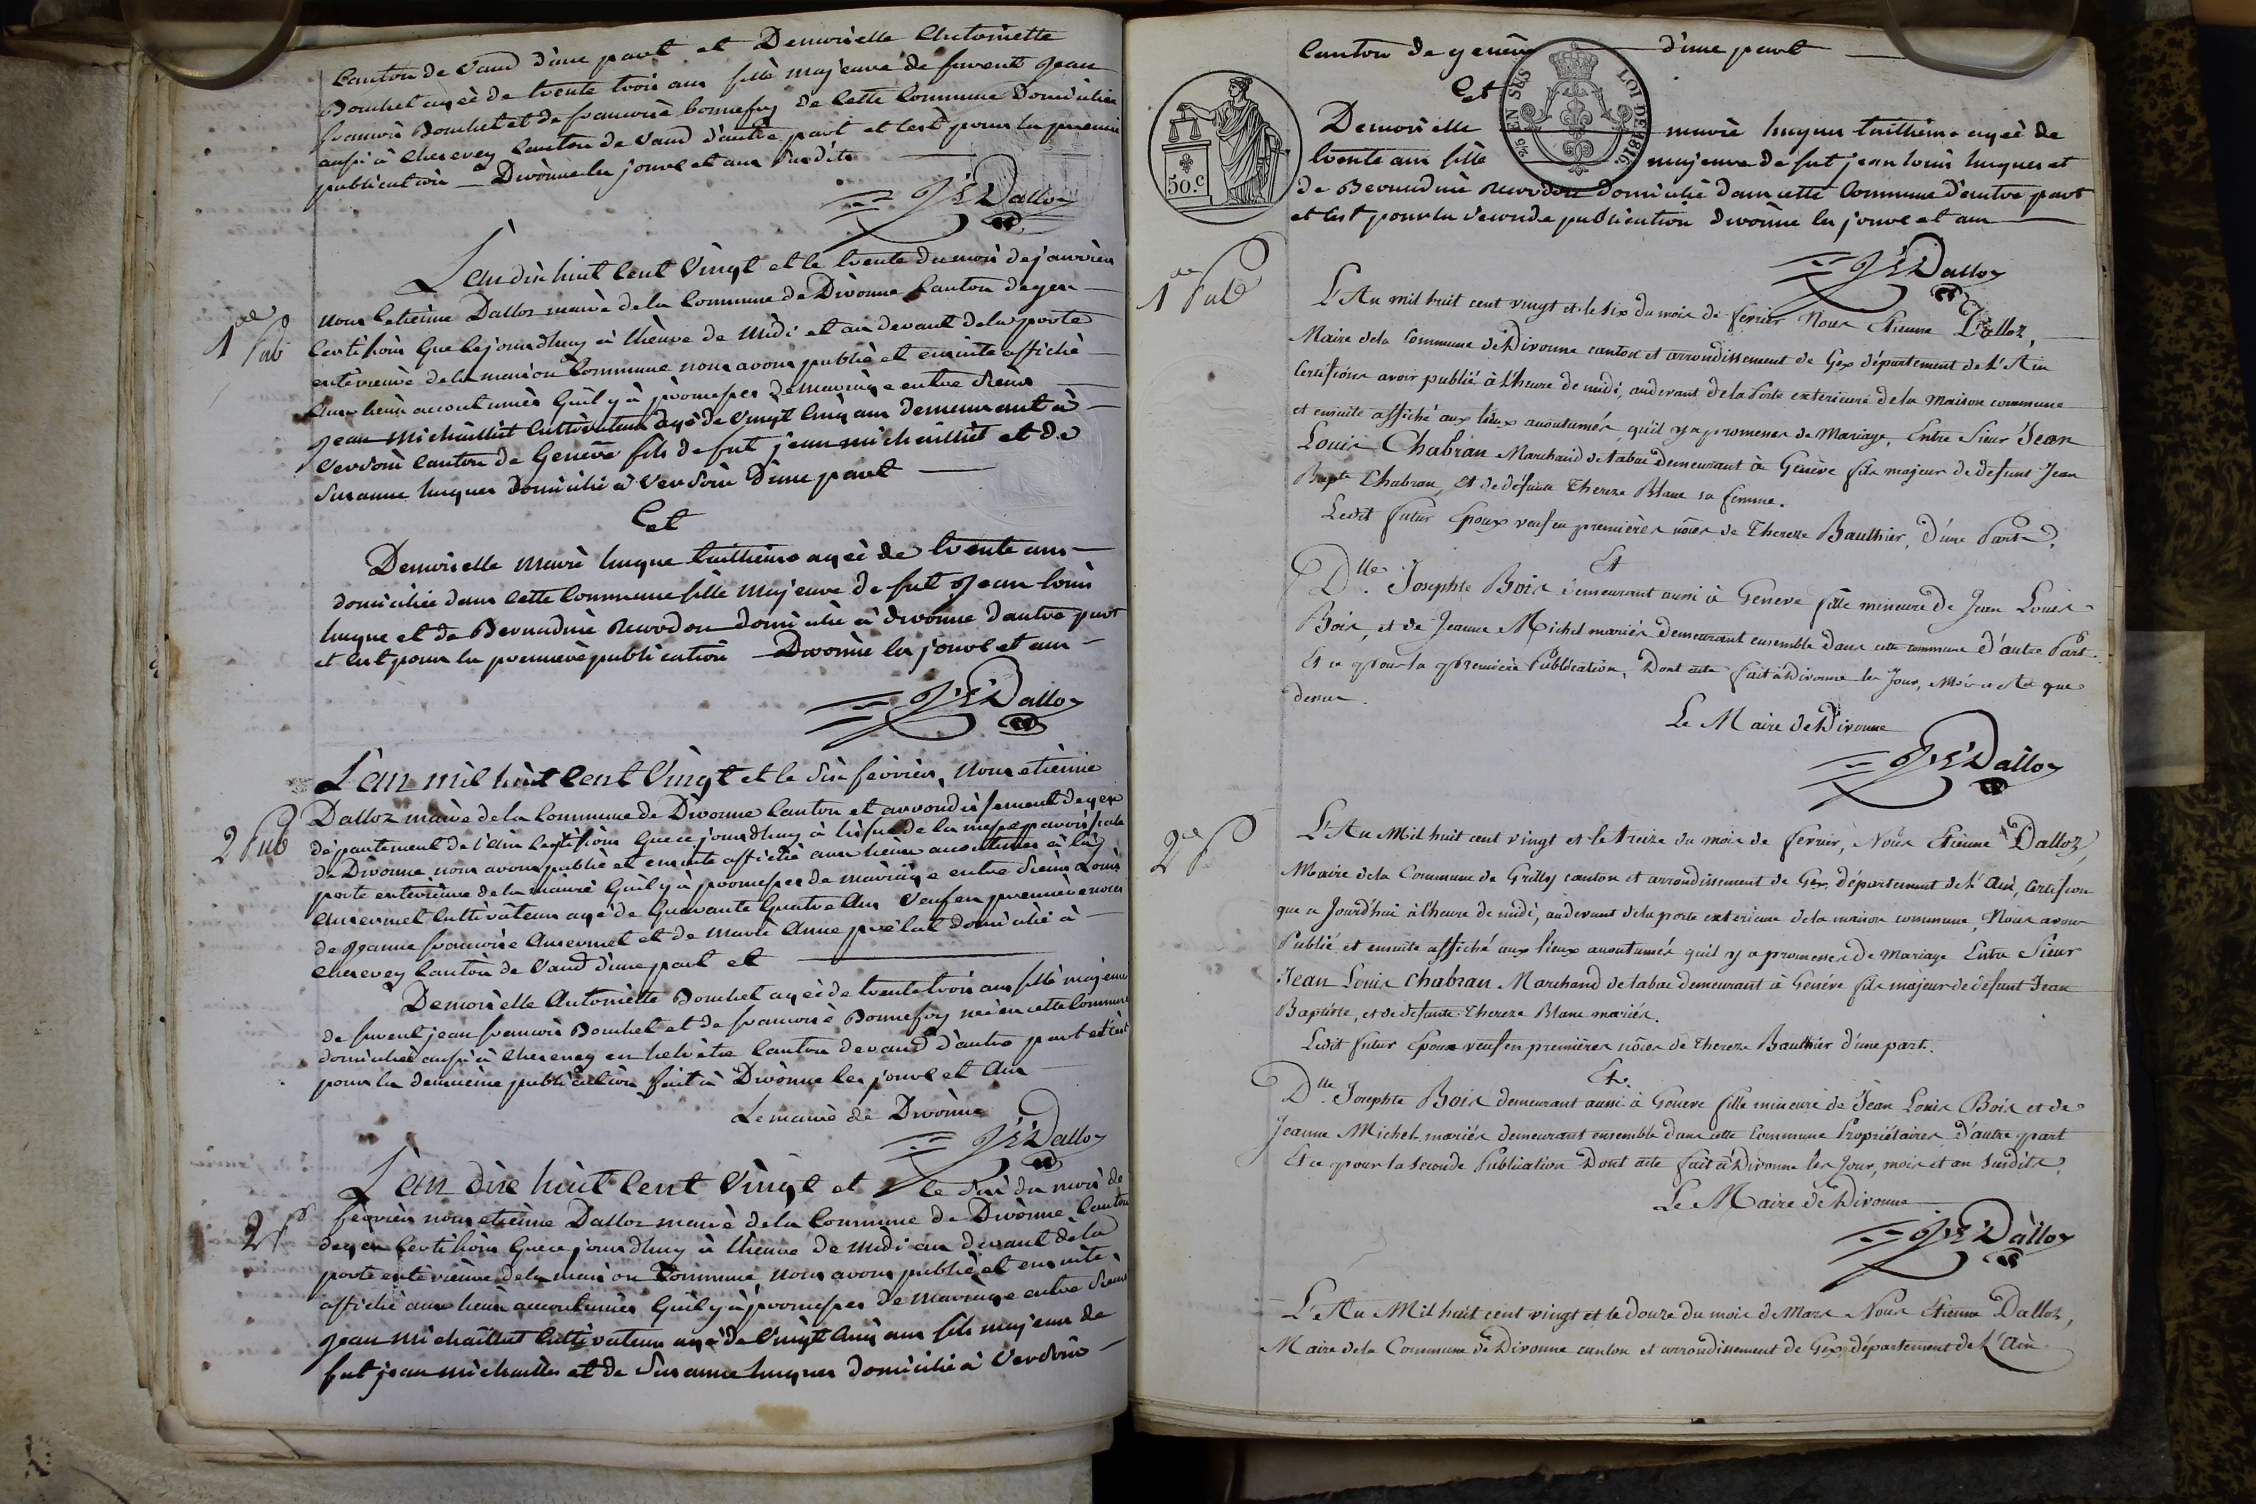 Canton de Vaud d'une part et Demoiselle Antoinette
Bouchet agée de trente trois ans fille majeure de furent Jean
francois Bouchet et de francoise bonnefoy de cette Commune Domiciliée
aussi à Cheserey Canton de Vaud d'autre part et cest pour la premie
publication Divonne les jours et an susdits
J E Dalloz
1re Pub
L'an dix huit Cent Vingt et le trente du mois de janvier
nous Etienne Dalloz maire de la Commune de Divonne Canton de gex
Certifions que cejourdhuy à lheure de midi et au devant de la porte
exterieure de la maison Commune nous avons publié et ensuite affiché
aux lieux accoutumés quil y à promesses de mariage entre Sieur
Jean Michaillet Cultivateur agé de Vingt cinq ans demeurant à
Versoix Canton de Genève fils de fut jean michaillet et de
Susanne huques domicilié à Versoix D'une part
Et
Demoiselle marie huque taillieine agée de trente ans
domiciliée dans cette Commune fille majeure de fut Jean louis
huque et de Bernardine Revordon domicilié à divonne dautre part
et cest pour la premiere publication Divonne les jours et an
J E Dalloz
2 Pub
L'an mil huit Cent Vingt et le Six fevrier, Nous etienne
Dalloz maire de la Commune de Divonne Canton et arrondissement de gex
département de l'Ain Certifions que ce jourdhuy à lissue de la messe paroissiale
de Divonne nous avons publié et ensuite affiché aux lieux accoutumés à la
porte exterieure de la mairie quil y à promesses de mariage entre Sieur Louis
Ansermet Cultivateur agé de quarante quatre ans Veuf en premiere noces
de Jeanne francoise Ansermet et de Marie Anne prélat domicilié à
Cheserey Canton de Vaud d'une part et
Demoiselle Antoniette Bouchet agée de trente trois ans fille majeure
de furent jean francois Bouchet et de francoise Bonnefoy née en cette Commune
domiciliée aussi à Cheserey en helvetie Canton de vaud d'autre part et c'est
pour la deuxieme publication fait à Divonne les jours et An
Le maire de Divonne
J E Dalloz
2 P
L'an dix huit Cent Vingt et le six du mois de
fevrier nous etienne Dalloz maire de la Commune de Divonne Canton
de gex Certifions que ce jourdhuy à lheure de midi au devant de la
porte exterieure de la maison Commune, nous avons publié et ensuite
affiché aux lieux accoutumés quil y à promesses de mariage entre Sieur
Jean Michaillet Cultivateur agé de Vingt cinq ans fils majeur de
fut jean michaillet et de Susanne huques domicilié à Versoix
Canton de genève d'une part
Et
Demoiselle marie huques taillieine agée de
trente ans fille majeure de fut jean louis huques et
de Bernardine Revordon domicilié dans cette Commune d'autre part
et cest pour la seconde publication divonne les jours et an
EN SES LOI DE 1816
50.c
J E Dalloz
1re Pub
L'An mil huit cent vingt et le six du mois de fevrier Nous Etienne Dalloz,
Maire de la Commune de Divonne canton et arrondissement de Gex département de L'Ain
Certifions avoir publié à l'heure de midi, au devant de la Porte exterieure de la Maison commune
et ensuite affiché aux lieux accoutumés, qu'il y a promesses de Mariage, Entre Sieur Jean
Louis Chabran Marchand de tabac demeurant à Genève fils majeur de defunt Jean
Bapte Chabran, Et de défunte Therese Blanc sa femme.
Ledit futur Epoux veuf en premières nôces de Therese Bauthier, d'une Part.
Et
Dlle Josephte Bois demeurant aussi à Geneve fille mineure de Jean Louis
Bois, et de Jeanne Michel mariés demeurant ensemble dans cette commune d'autre Part.
Et ce pour la Première Publication, Dont acte fait à Divonne les Jour, Mois et An que
dessus.
Le Maire de Divonne
J E Dalloz
2e P
L'An Mil huit cent vingt et le treize du mois de fevrier, Nous Etienne Dalloz,
Maire de la Commune de Grilly canton et arrondissement de Gex, département de L'Ain, Certifions
que ce Jourd'hui à l'heure de midi, au devant de la porte exterieure de la maison commune, Nous avons
Publié et ensuite affiché aux lieux accoutumés qu'il y a promesses de Mariage Entre Sieur
Jean Louis Chabran Marchand de tabac demeurant à Genève fils majeur de défunt Jean
Baptiste, et de défunte Therese Blanc mariés.
Ledit futur Epoux veuf en premières nôces de Therese Bauthier d'une part.
Et
Dlle Josephte Bois demeurant aussi à Geneve fille mineure de Jean Louis Bois et de
Jeanne Michel mariés demeurant ensemble dans cette Commune Propriétaires d'autre part
Et ce pour la Seconde Publication Dont acte fait à Divonne les Jour, mois et an susdits.
Le Maire de Divonne
J E Dalloz
L'An Mil huit cent vingt et le douze du mois de Mars Nous Etienne Dalloz,
Maire de la Commune de Divonne canton et arrondissement de Gex département de L'Ain